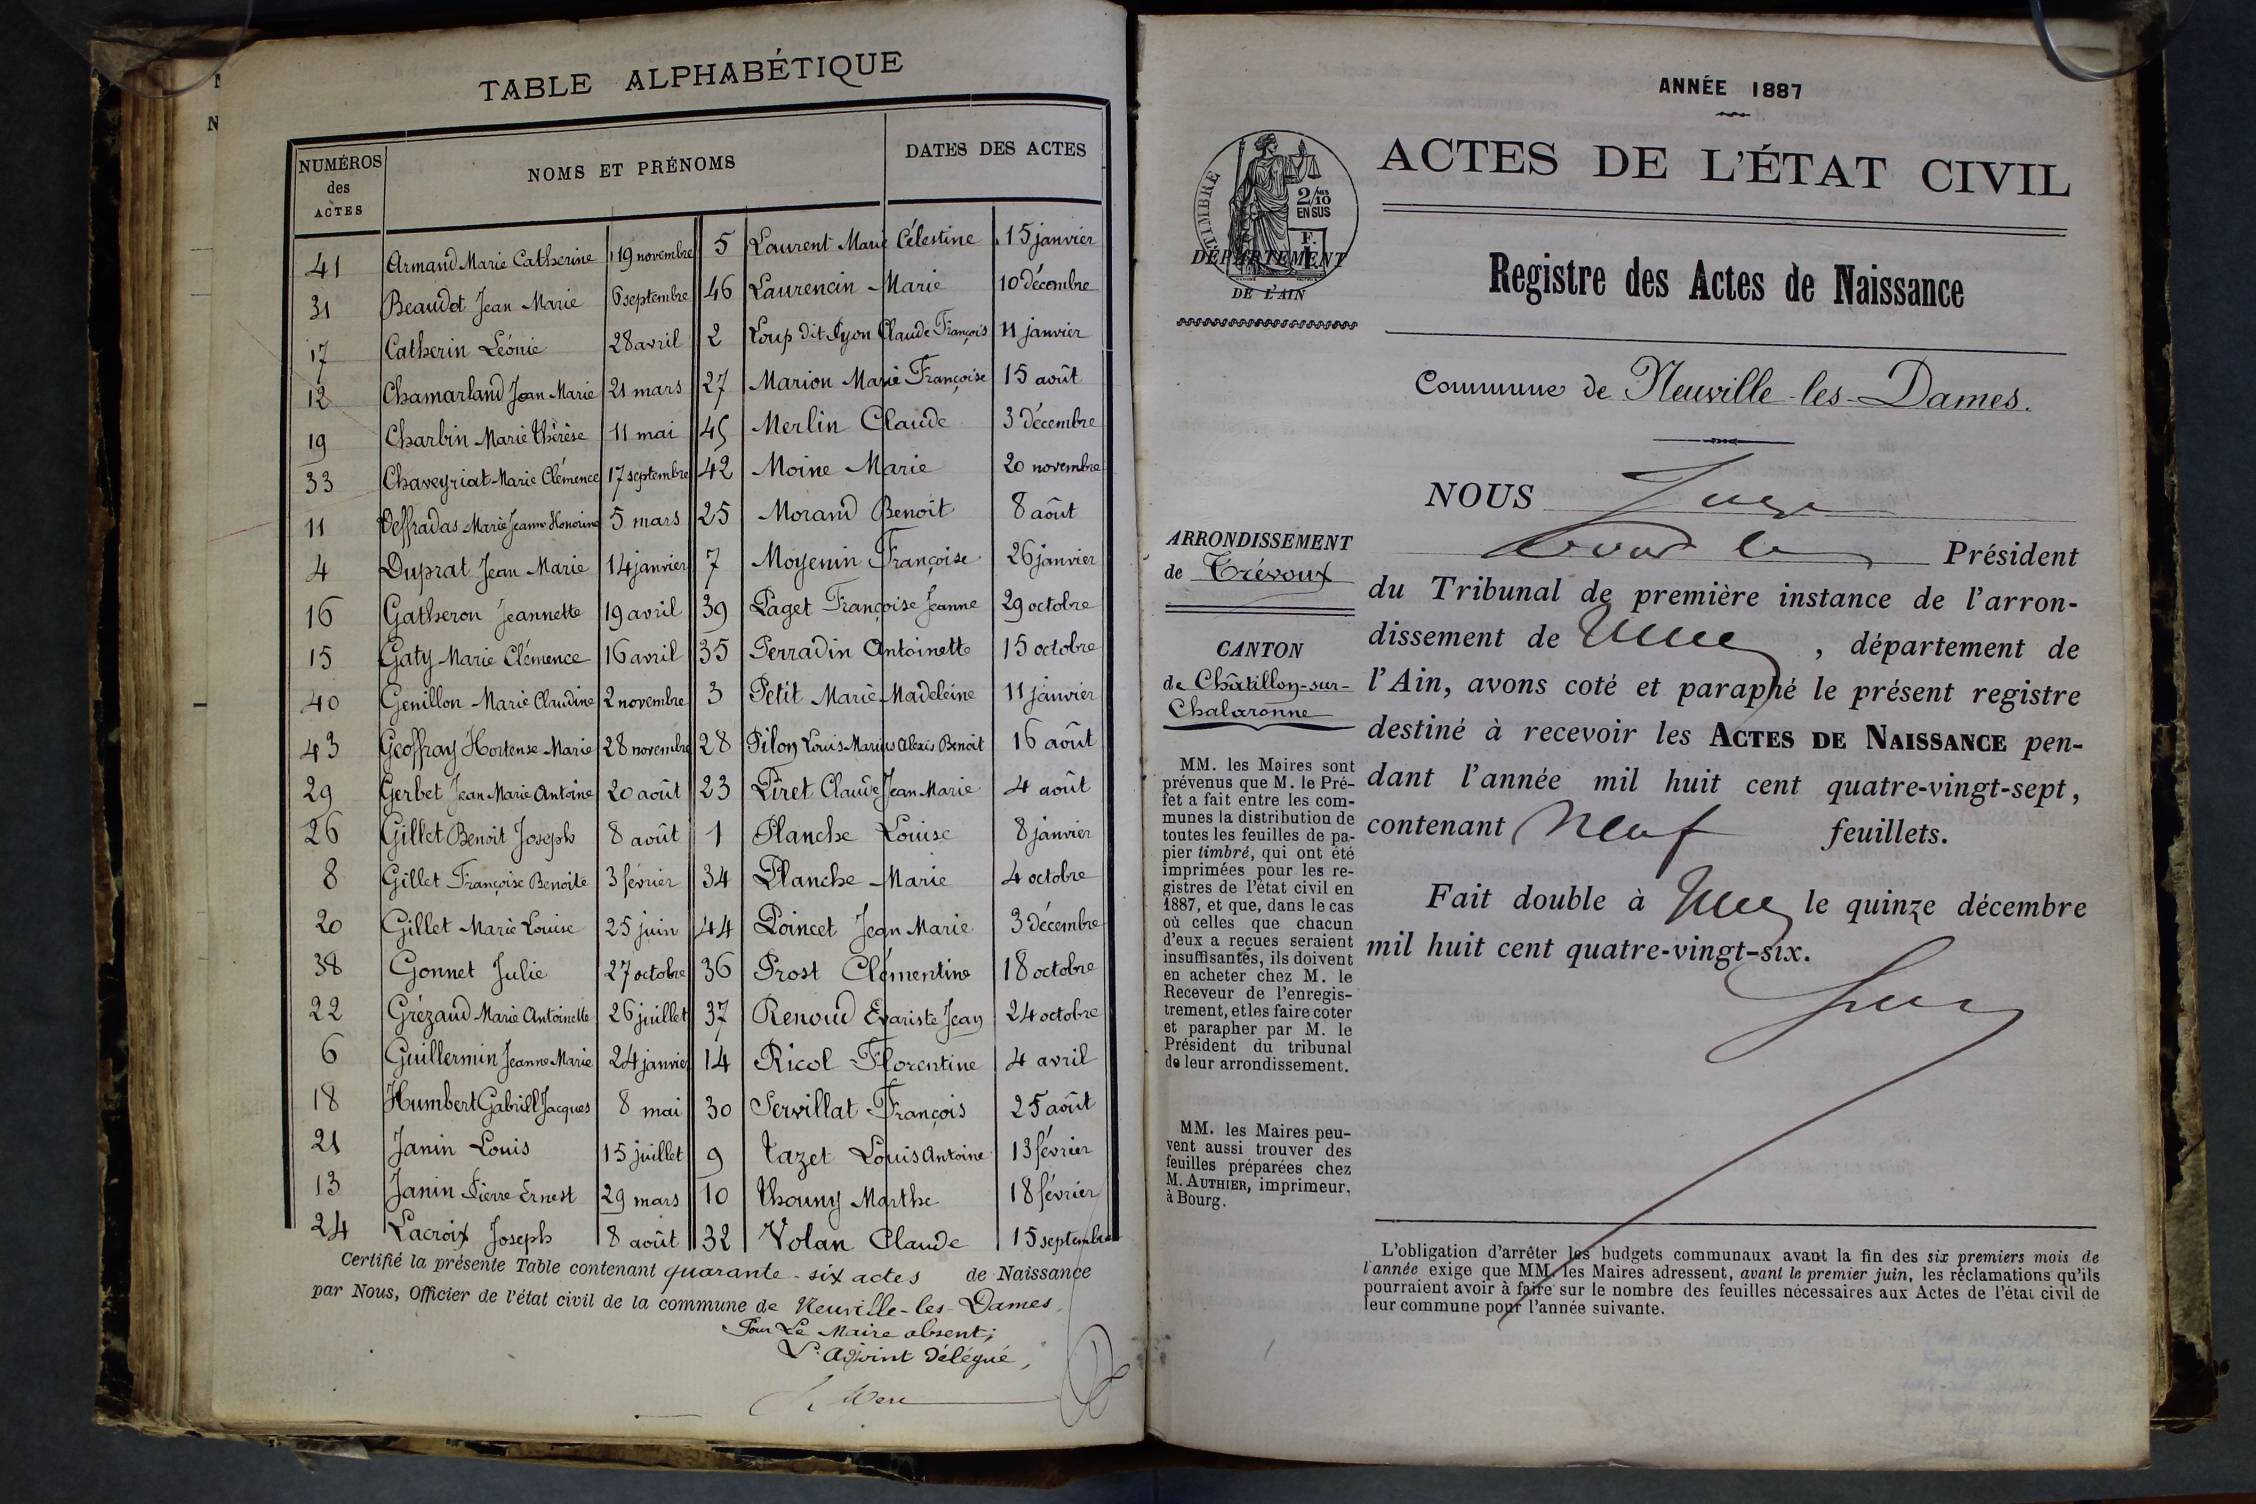 TABLE ALPHABÉTIQUE
NUMÉROS
des
ACTES
NOMS ET PRÉNOMS
DATES DES ACTES
41 Armand Marie Catherine 19 novembre
31 Beaudet Jean Marie 6 septembre
17 Catherin Léonie 28 avril
12 Chamarland Jean Marie 21 mars
19 Charbin Marie Thérèse 11 mai
33 Chaveyriat Marie Clémence 17 septembre
11 Deffradas Marie Jeanne Honorine 5 mars
4 Duprat Jean Marie 14 janvier
16 Gatheron Jeannette 19 avril
15 Gaty Marie Clémence 16 avril
40 Genillon Marie Claudine 2 novembre
43 Geoffray Hortense Marie 28 novembre
29 Gerbet Jean Marie Antoine 20 août
26 Gillet Benoit Joseph 8 août
8 Gillet Françoise Benoite 3 février
20 Gillet Marie Louise 25 juin
38 Gonnet Julie 27 octobre
22 Grézaud Marie Antoinette 26 juillet
6 Guillermin Jeanne Marie 24 janvier
18 Humbert Gabriell Jacques 8 mai
21 Janin Louis 15 juillet
13 Janin Pierre Ernest 29 mars
24 Lacroix Joseph 8 août
5 Laurent Marie Célestine 15 janvier
46 Laurencin Marie 10 décembre
2 Loup dit Lyon Claude François 11 janvier
27 Marion Marie Françoise 15 août
45 Merlin Claude 3 décembre
42 Moine Marie 20 novembre
25 Morand Benoit 8 août
7 Moyenin Françoise 26 janvier
39 Paget Françoise Jeanne 29 octobre
35 Perradin Antoinette 15 octobre
3 Petit Marie Madeleine 11 janvier
28 Pilon Louis Marius Alexis Benoit 16 août
23 Piret Claude Jean Marie 4 août
1 Planche Louise 8 janvier
34 Planche Marie 4 octobre
44 Poincet Jean Marie 3 décembre
36 Prost Clémentine 18 octobre
37 Renoud Evariste Jean 24 octobre
14 Ricol Florentine 4 avril
30 Servillat François 25 août
9 Tazet Louis Antoine 13 février
10 Thouny Marthe 18 février
32 Volan Claude 15 septembre
Certifié la présente Table contenant quarante-six actes de Naissance
par Nous, Officier de l'état civil de la commune de Neuville-les-Dames
Pour Le Maire absent;
L'adjoint délégué,
ANNÉE 1887
ACTES DE L'ÉTAT CIVIL
TIMBRE
2/10
EN SUS
F.
1
DÉPARTEMENT
DE L'AIN
Registre des Actes de Naissance
Commune de Neuville-les-Dames.
ARRONDISSEMENT
de Trévoux
CANTON
de Châtillon-sur-
Chalaronne
MM. les Maires sont
prévenus que M. le Pré-
fet a fait entre les com-
munes la distribution de
toutes les feuilles de pa-
pier timbré, qui ont été
imprimées pour les re-
gistres de l'état civil en
1887, et que, dans le cas
où celles que chacun
d'eux a reçues seraient
insuffisantes, ils doivent
en acheter chez M. le
Receveur de l'enregis-
trement, et les faire coter
et parapher par M. le
Président du tribunal
de leur arrondissement.
MM. les Maires peu-
vent aussi trouver des
feuilles préparées chez
M. AUTHIER, imprimeur,
à Bourg.
NOUS Juge
Président
du Tribunal de première instance de l'arron-
dissement de , département de
l'Ain, avons coté et paraphé le présent registre
destiné à recevoir les ACTES DE NAISSANCE pen-
dant l'année mil huit cent quatre-vingt-sept,
contenant Neuf feuillets.
Fait double à le quinze décembre
mil huit cent quatre-vingt-six.
L'obligation d'arrêter les budgets communaux avant la fin des six premiers mois de
l'année exige que MM. les Maires adressent, avant le premier juin, les réclamations qu'ils
pourraient avoir à faire sur le nombre des feuilles nécessaires aux Actes de l'état civil de
leur commune pour l'année suivante.